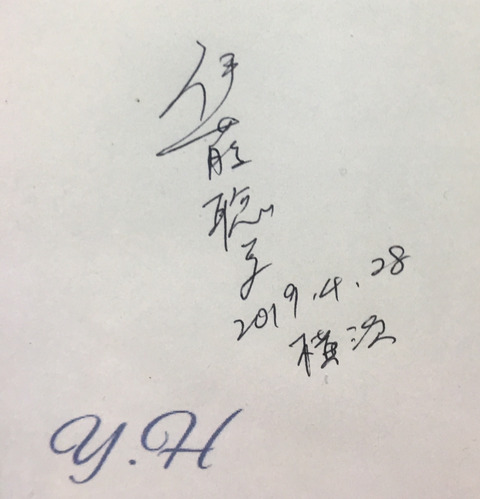 伊藤聡子
2019.4.28
横浜
Y.H